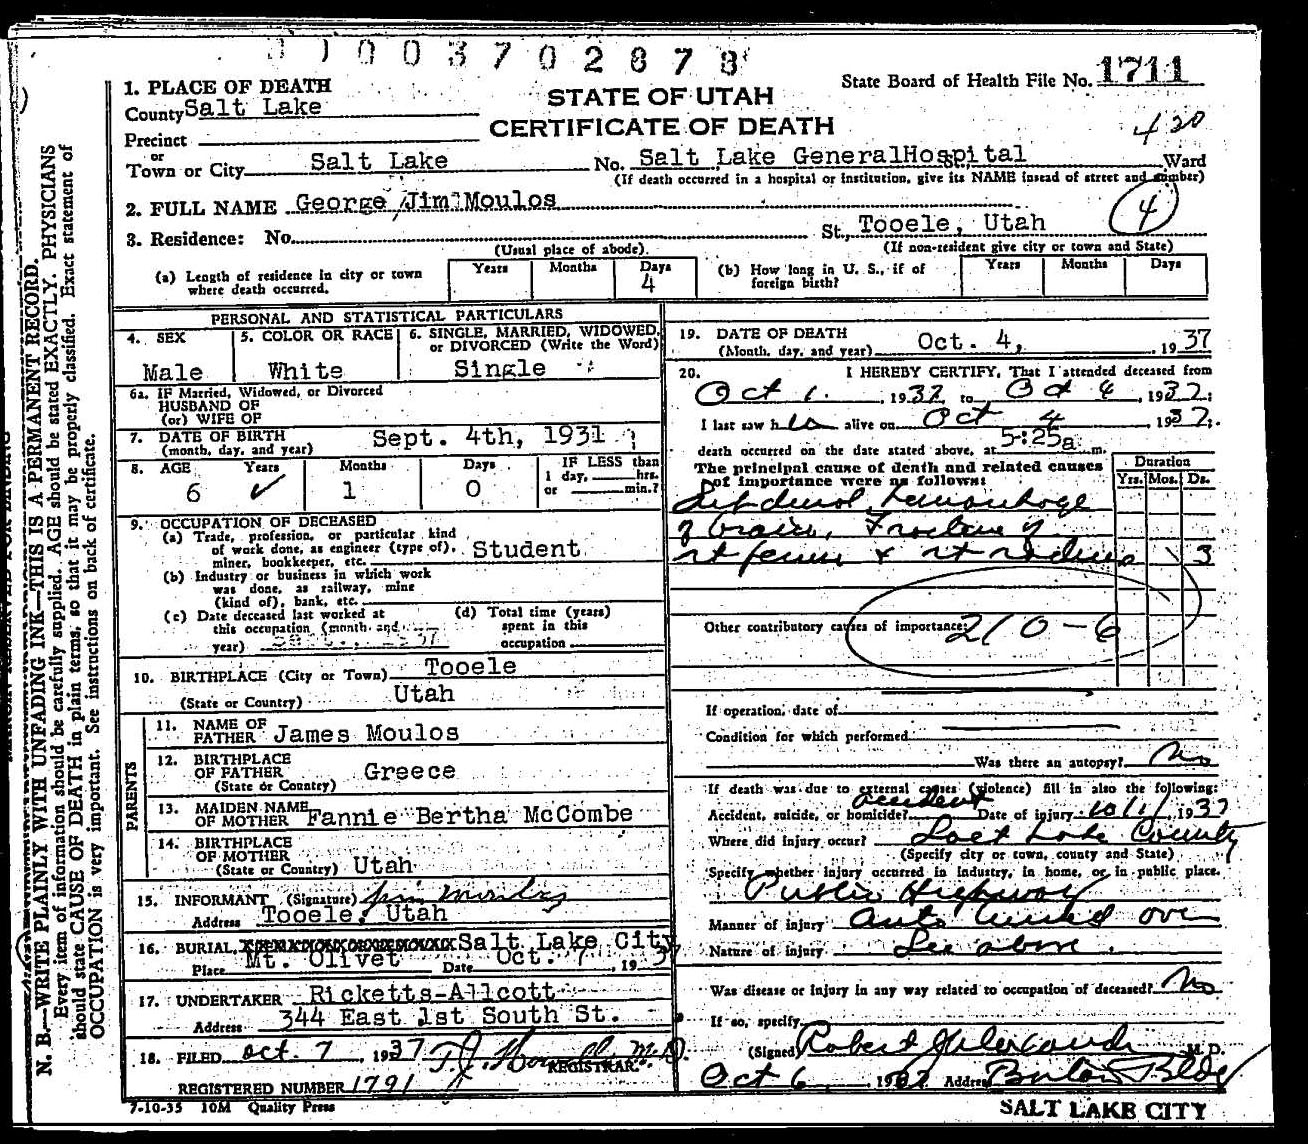 003702878
1. PLACE OF DEATH
County Salt Lake
Precinct
or
Town or City Salt Lake No. Salt Lake GeneralHospital St. Ward
(If death occurred in a hospital or institution, give its NAME insead of street and number)
STATE OF UTAH
CERTIFICATE OF DEATH
State Board of Health File No. 1711
420
2. FULL NAME George Jim Moulos
4
3. Residence: No. St., Tooele, Utah
(Usual place of abode). (If non-resident give city or town and State)
(a) Length of residence in city or town where death occurred. Years Months Days 4
(b) How long in U. S., if of foreign birth? Years Months Days
PERSONAL AND STATISTICAL PARTICULARS
4. SEX Male
5. COLOR OR RACE White
6. SINGLE, MARRIED, WIDOWED, or DIVORCED (Write the Word) Single
6a. IF Married, Widowed, or Divorced
HUSBAND OF
(or) WIFE OF
7. DATE OF BIRTH Sept. 4th, 1931
(month, day, and year)
8. AGE Years 6 ✓ Months 1 Days 0 IF LESS than 1 day, hrs. or min.?
9. OCCUPATION OF DECEASED
(a) Trade, profession, or particular kind
of work done, as engineer (type of), Student
miner, bookkeeper, etc.
(b) Industry or business in which work
was done, as railway, mine
(kind of), bank, etc.
(c) Date deceased last worked at this occupation (month and year) 1937
(d) Total time (years) spent in this occupation
10. BIRTHPLACE (City or Town) Tooele
(State or Country) Utah
PARENTS
11. NAME OF FATHER James Moulos
12. BIRTHPLACE OF FATHER Greece
(State or Country)
13. MAIDEN NAME OF MOTHER Fannie Bertha McCombe
14. BIRTHPLACE OF MOTHER
(State or Country) Utah
15. INFORMANT (Signature) Jim
Address Tooele, Utah
16. BURIAL, Salt Lake City
Place Mt. Olivet Date Oct. 7, 1937
17. UNDERTAKER Ricketts-Allcott
Address 344 East 1st South St.
18. FILED Oct. 7, 1937 T. J. Howells M.D.
REGISTRAR.
REGISTERED NUMBER 1791
7-10-35 10M Quality Press
19. DATE OF DEATH Oct. 4, 1937
(Month, day, and year)
20. I HEREBY CERTIFY, That I attended deceased from
Oct 1, 1937, to Oct 4, 1937;
I last saw him alive on Oct 4, 1937;
death occurred on the date stated above, at 5:25a m.
The principal cause of death and related causes
of importance were as follows:
Duration
Yrs. Mos. Ds.
Subdural hemorrhage
of brain, Fracture of
rt femur & rt radius 3
Other contributory causes of importance: 210-6
If operation, date of
Condition for which performed
Was there an autopsy? No
If death was due to external causes (violence) fill in also the following:
Accident, suicide, or homicide? accident Date of injury 10/1/, 1937
Where did injury occur? Salt Lake County
(Specify city or town, county and State)
Specify whether injury occurred in industry, in home, or in public place.
Public Highway
Manner of injury Auto turned over
Nature of injury See above.
Was disease or injury in any way related to occupation of deceased? No
If so, specify
(Signed) Robert M. D.
Oct 6, 1937 Address Boston Bldg
SALT LAKE CITY
N. B.—WRITE PLAINLY WITH UNFADING INK—THIS IS A PERMANENT RECORD.
Every item of information should be carefully supplied. AGE should be stated EXACTLY. PHYSICIANS
should state CAUSE OF DEATH in plain terms, so that it may be properly classified. Exact statement of
OCCUPATION is very important. See instructions on back of certificate.